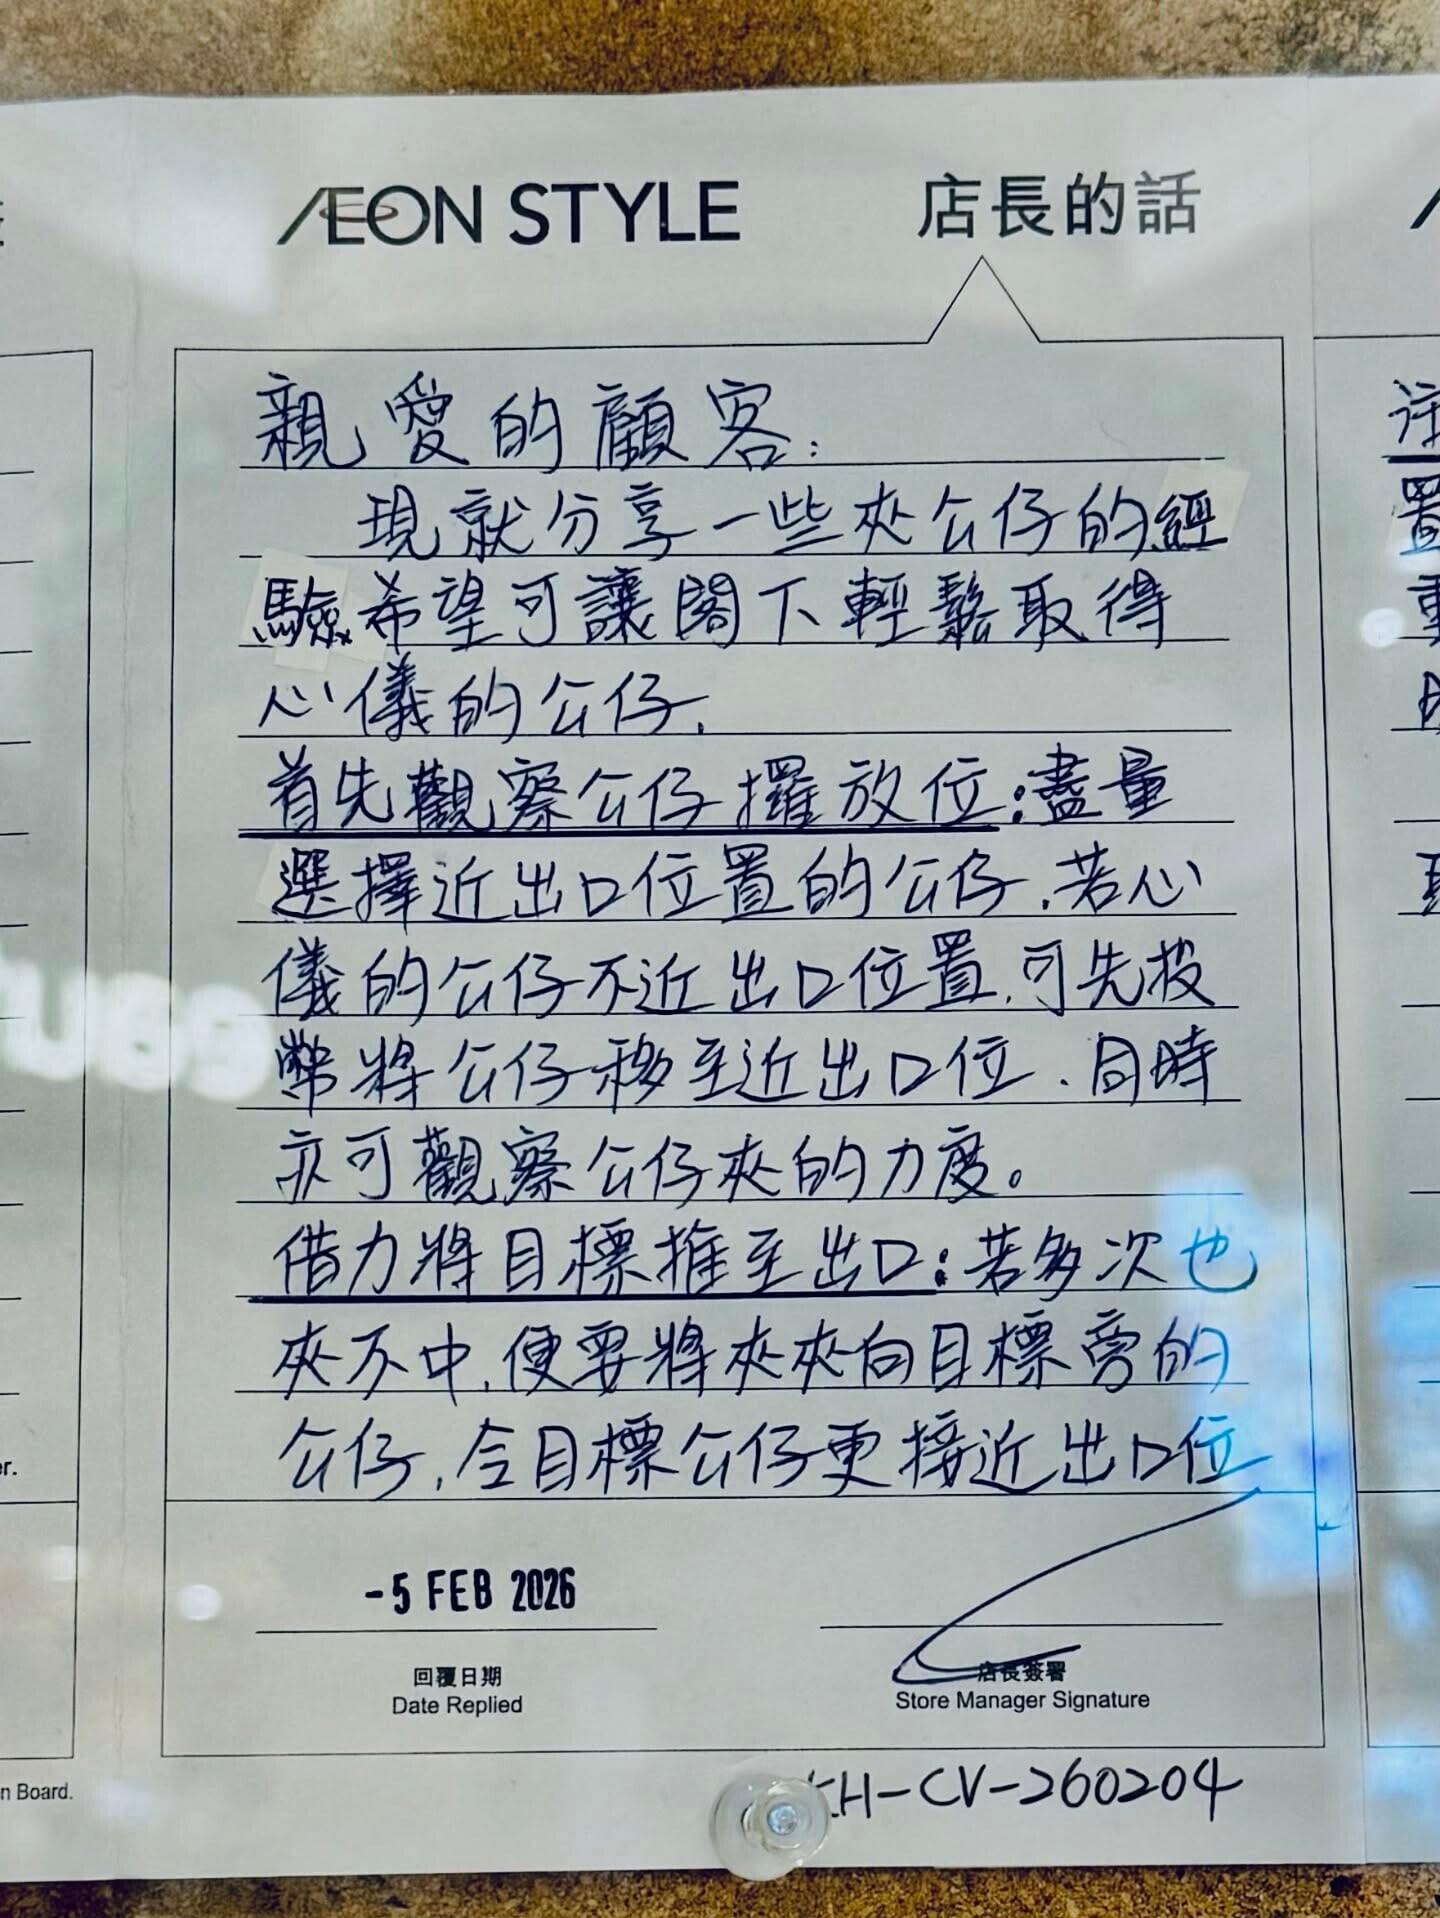 ÆON STYLE
店長的話
親愛的顧客:
現就分享一些夾公仔的經
驗希望可讓閣下輕鬆取得
心儀的公仔.
首先觀察公仔擺放位:盡量
選擇近出口位置的公仔.若心
儀的公仔不近出口位置,可先投
幣將公仔移至近出口位.同時
亦可觀察公仔夾的力度。
借力將目標推至出口:若多次也
夾不中,便要將夾夾向目標旁的
公仔,令目標公仔更接近出口位
-5 FEB 2026
回覆日期
Date Replied
店長簽署
Store Manager Signature
H-CV-260204
n Board.